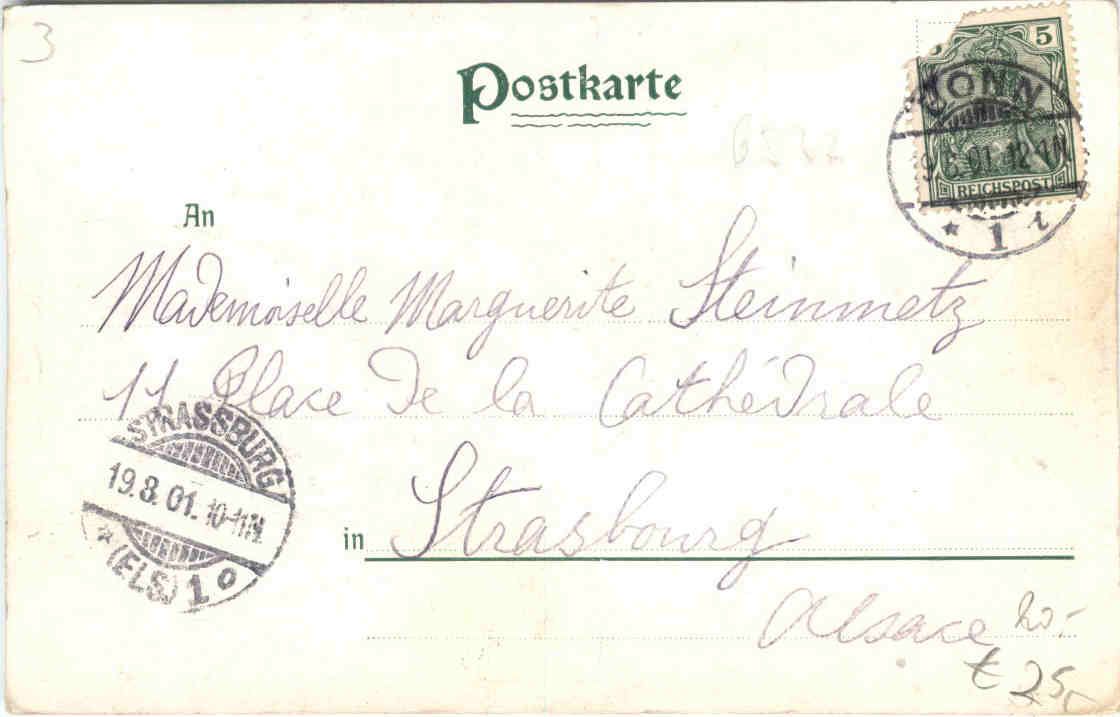 3
Postkarte
5
BONN
9.8.01.12-1N
REICHSPOST
* 1 i
An
Mademoiselle Marguerite Steinmetz
11 Place de la Cathédrale
STRASSBURG
19.8.01.10-11N.
* (ELS) 1 o
in Strasbourg
Alsace
20.-
€ 25,-